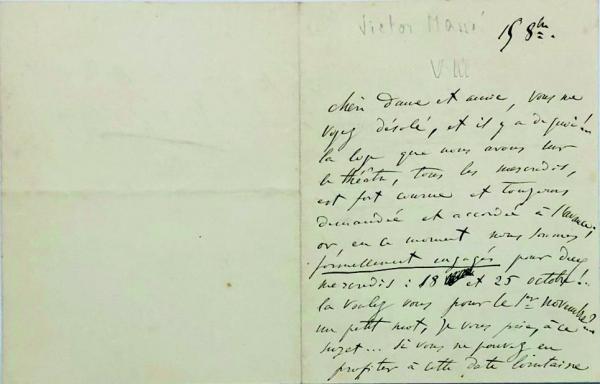 Victor Massé
VM
15 8bre.
chère dame et amie, vous me
voyez désolé, et il y a de quoi!
la loge que nous avons sur
le théâtre, tous les mercredis,
est fort courue et toujours
demandée et accordée à l'avance;
or, en ce moment nous sommes
formellement engagés pour deux
mercredis: 18 et 25 octobre!..
la voulez vous pour le 1er novembre?
un petit mot, je vous prie, à ce
sujet... si vous ne pouvez en
profiter à cette date lointaine